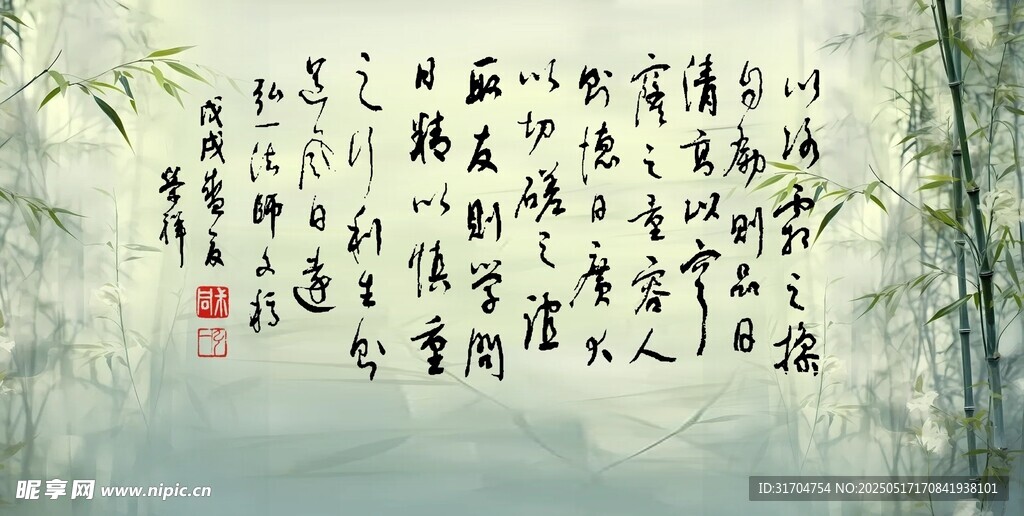 以冰霜之操
自勵則品日
清高以穹
窿之量容人
則德日廣大
以切磋之誼
取友則學問
日精以慎重
之行利生則
道風日遠
弘一法師文稿
戊戌盛夏
榮祥
昵享网 www.nipic.cn
ID:31704754 NO:20250517170841938101